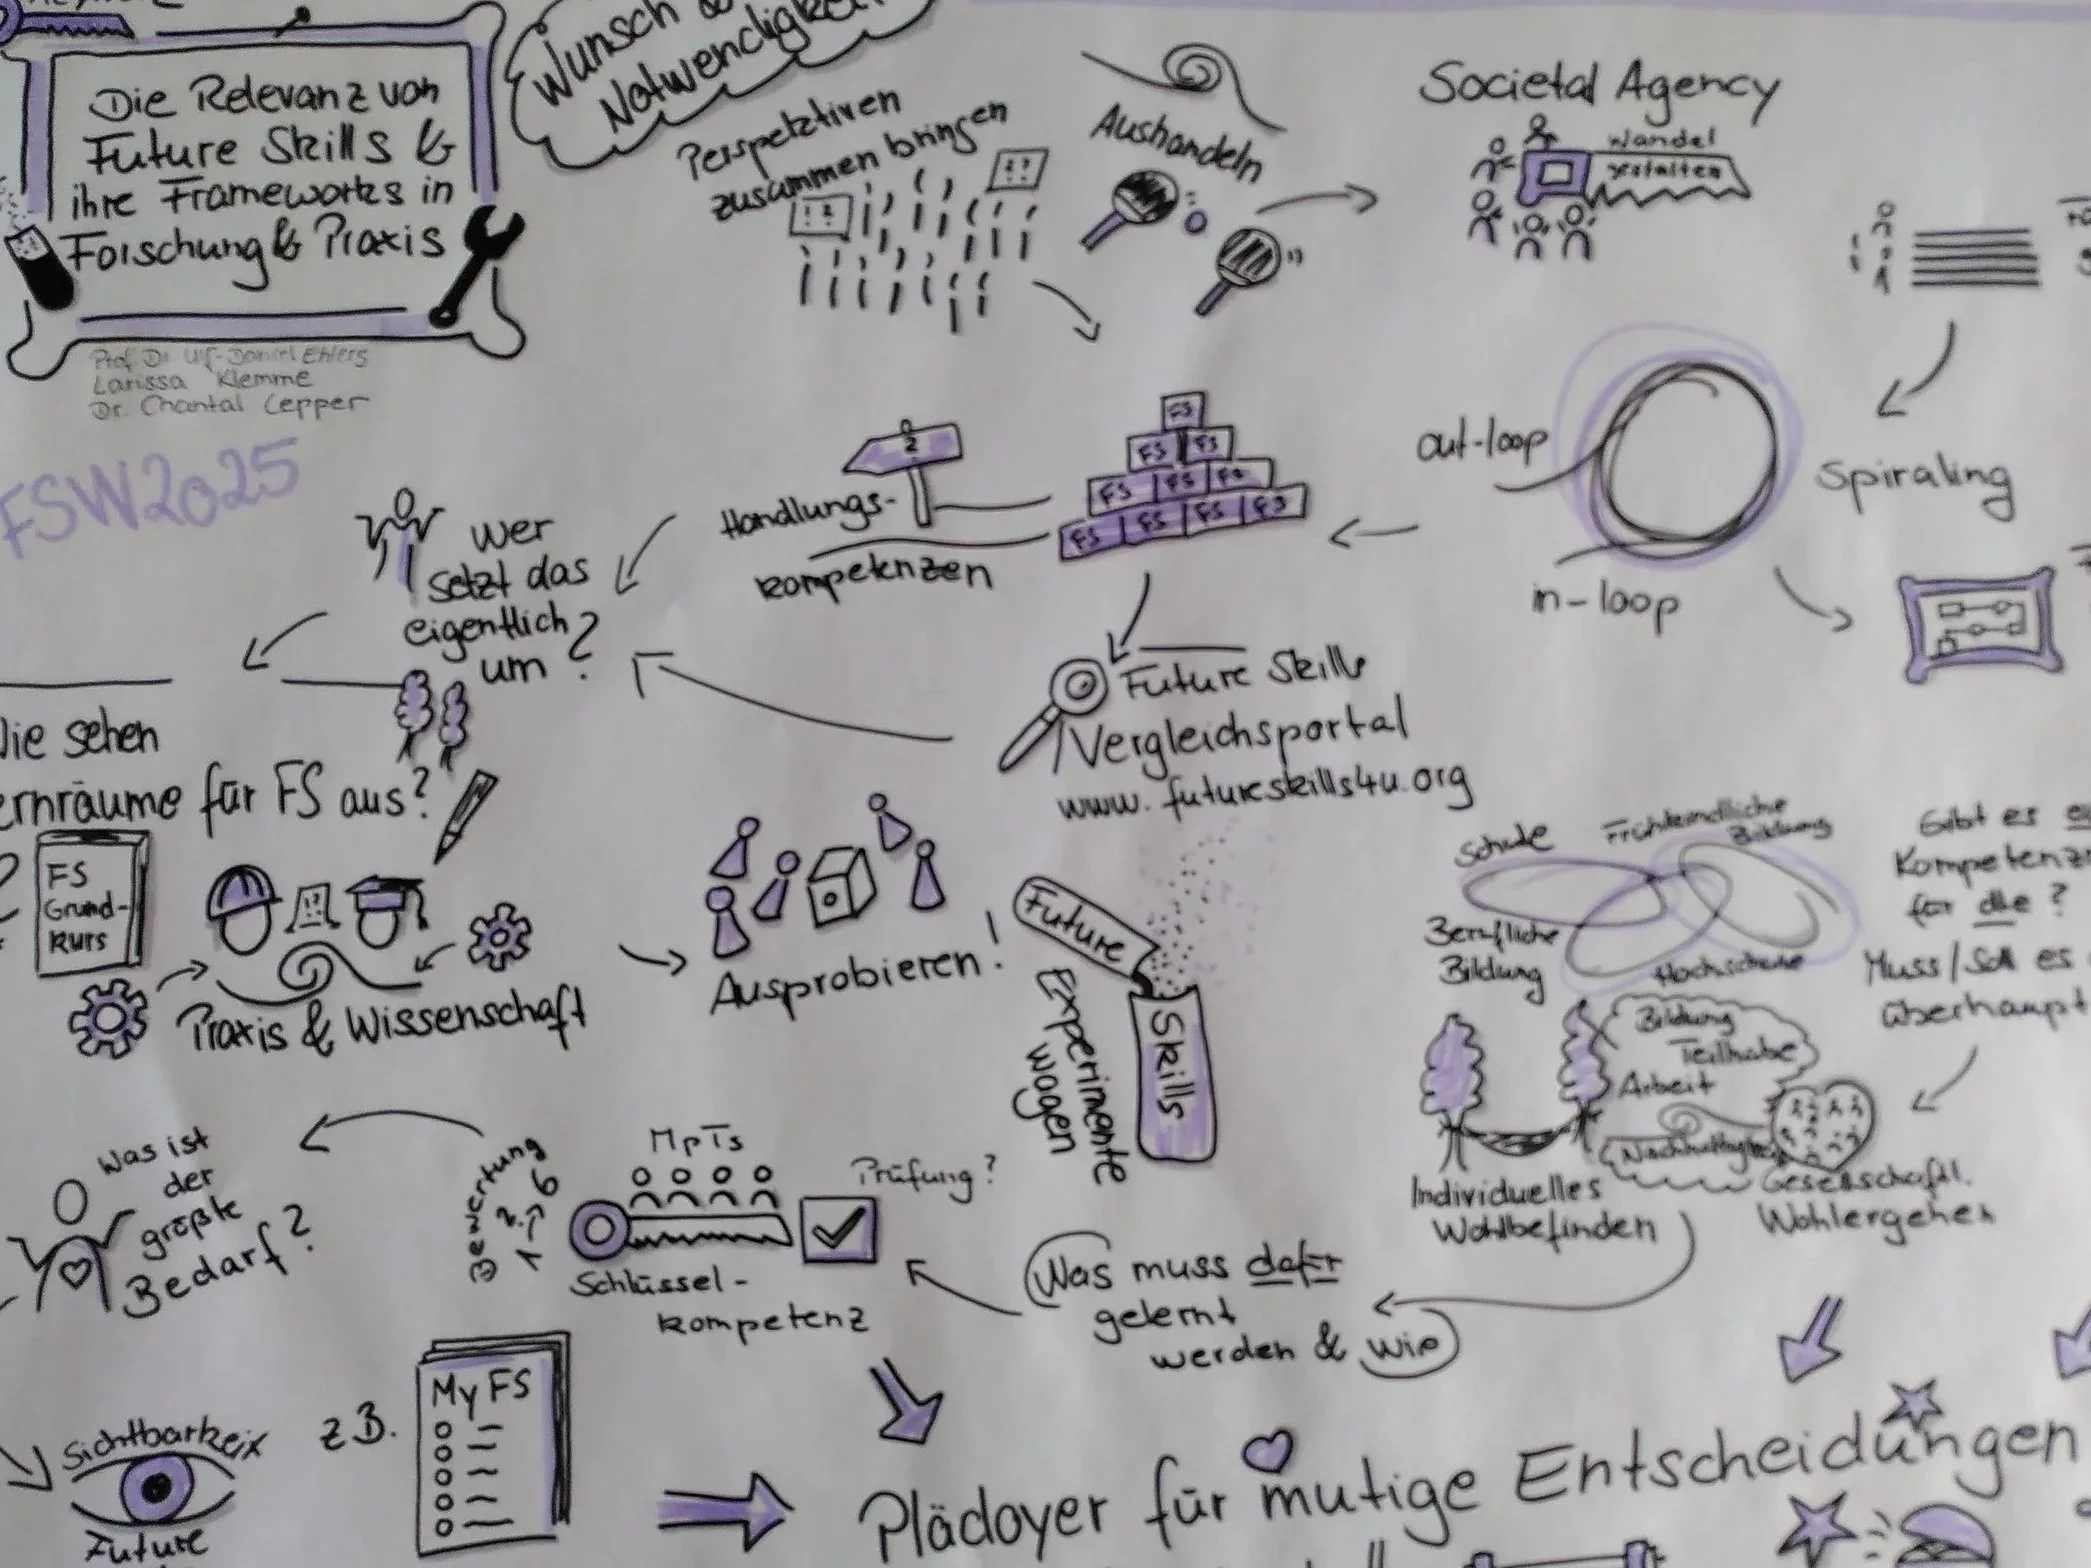 Die Relevanz von
Future Skills &
ihre Frameworks in
Forschung & Praxis
Prof. Dr. Ulf-Daniel Ehlers
Larissa Klemme
Dr. Chantal Lepper
FSW2025
Wunsch &
Notwendigkeit
Perspektiven
zusammen bringen
!?
??
Aushandeln
Societal Agency
Wandel
gestalten
out-loop
Spiraling
in-loop
2
Handlungs-
kompetenzen
FS
FS FS
FS FS FS
FS FS FS FS
wer
setzt das
eigentlich
um?
Future Skills
Vergleichsportal
www.futureskills4u.org
Wie sehen
ernräume für FS aus?
FS
Grund-
kurs
!?
Praxis & Wissenschaft
Ausprobieren!
Future
Skills
Experimente
wagen
Schule
Frühkindliche
Bildung
Berufliche
Bildung
Hochschule
Gibt es
Kompetenz
für alle?
Muss/Soll es
überhaupt
Bildung
Teilhabe
Arbeit
Nachhaltigkeit
Individuelles
Wohlbefinden
Gesellschaftl.
Wohlergehen
Was ist
der
größte
Bedarf?
Bewertung
1 -> 6
MpTs
Prüfung?
Schlüssel-
kompetenz
Was muss dafür
gelernt
werden & wie
Sichtbarkeit
Future
z.B.
My FS
Plädoyer für mutige Entscheidungen